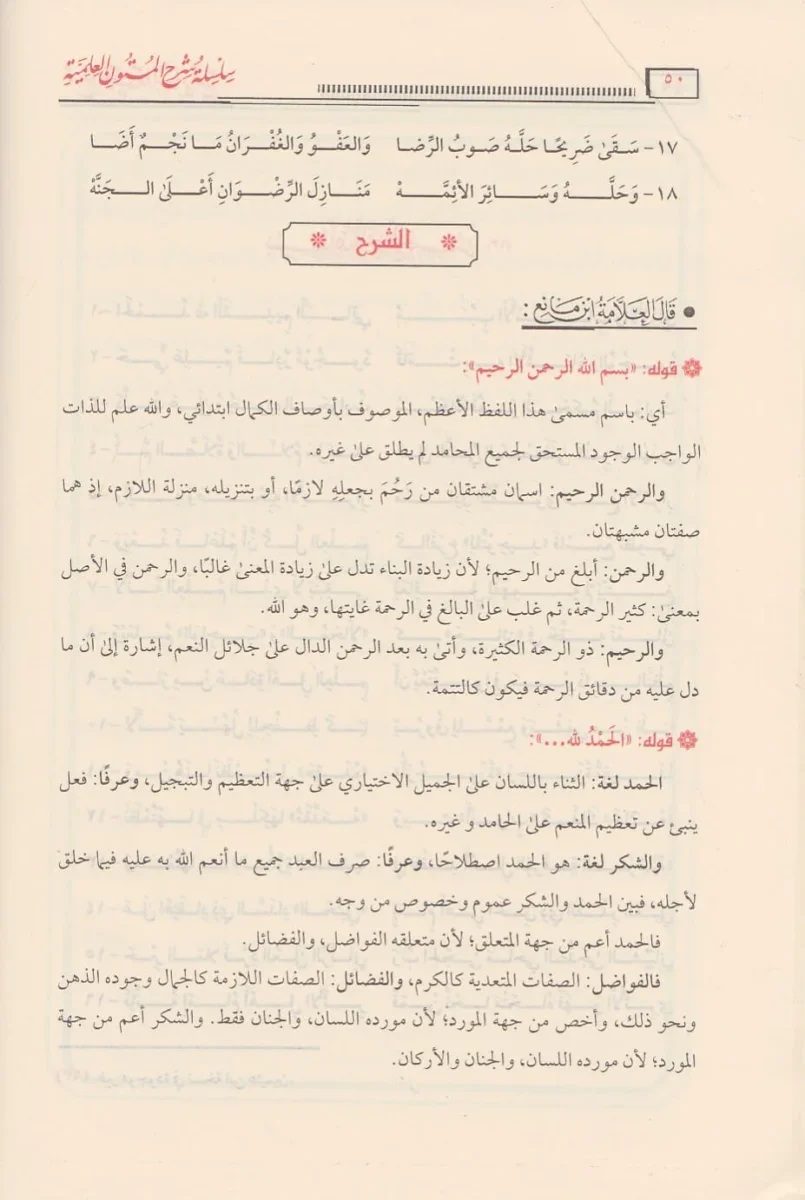 ٥٠
سلسلة شرح المتون العلمية
١٧- سَقَىٰ ضَرِيحًا حَلَّهُ صَوبُ الرِّضا وَالعَفْوُ وَالغُفْرَانُ مَا نَجْمٌ أَضَا
١٨- وَحَلَّهُ وَسَائِرَ الأئِمَّهْ مَنَازِلَ الرِّضْوَانِ أَعْلَىٰ الجَنَّهْ
الشرح
• قَالَ العَلَّامَةُ ابْن مَانِع:
قوله: «بسم الله الرحمن الرحيم»:
أي: باسم مسمىٰ هذا اللفظ الأعظم، الموصوف بأوصاف الكمال ابتدائي، والله علم للذات
الواجب الوجود المستحق لجميع المحامد لم يطلق علىٰ غيره.
والرحمن الرحيم: اسمان مشتقان من رَحُمَ بجعلِهِ لازمًا، أو بتنزيله، منزلة اللازم، إذ هما
صفتان مشبهتان.
والرحمن: أبلغ من الرحيم؛ لأن زيادة البناء تدل علىٰ زيادة المعنىٰ غالبًا، والرحمن في الأصل
بمعنىٰ: كثير الرحمة، ثم غلب علىٰ البالغ في الرحمة غايتها، وهو الله.
والرحيم: ذو الرحمة الكثيرة، وأتىٰ به بعد الرحمن الدال علىٰ جلائل النعم، إشارة إلىٰ أن ما
دل عليه من دقائق الرحمة فيكون كالتتمة.
قوله: «الحَمْدُ لله...»:
الحمد لغة: الثناء باللسان علىٰ الجميل الاختياري علىٰ جهة التعظيم والتبجيل، وعرفًا: فعل
ينبئ عن تعظيم المنعم علىٰ الحامد و غيره.
والشكر لغة: هو الحمد اصطلاحًا، وعرفًا: صرف العبد جميع ما أنعم الله به عليه فيما خلق
لأجله، فبين الحمد والشكر عموم وخصوص من وجه.
فالحمد أعم من جهة المتعلق؛ لأن متعلقه الفواضل، والفضائل.
فالفواضل: الصفات المتعدية كالكرم، والفضائل: الصفات اللازمة كالجمال وجوده الذهن
ونحو ذلك، وأخص من جهة المورد؛ لأن مورده اللسان، والجنان فقط. والشكر أعم من جهة
المورد؛ لأن مورده اللسان، والجنان والأركان.